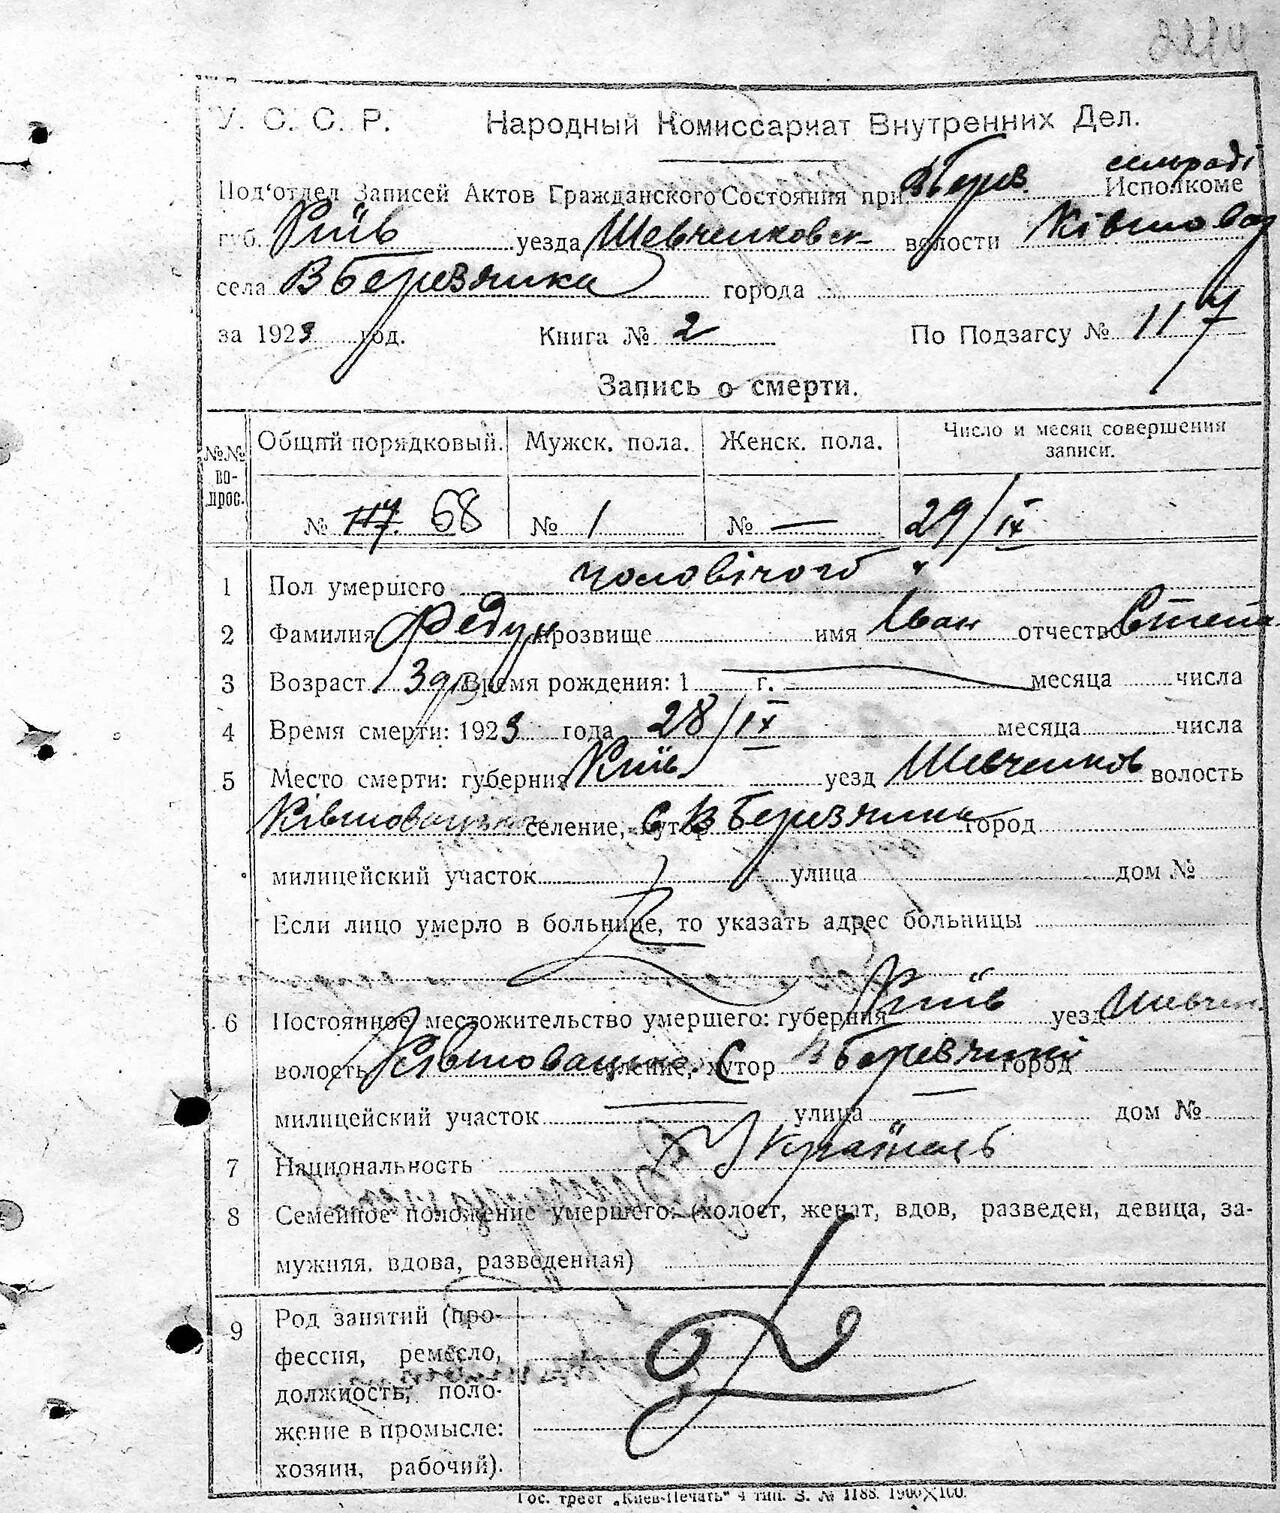 У. С. С. Р. Народный Комиссариат Внутренних Дел.
Под‘отдел Записей Актов Гражданского Состояния при В Берез. сельраді Исполкоме
губ. Київ уезда Шевченковск волости Ківшовац
села В Березянка города
за 1923 год. Книга № 2 По Подзагсу № 117
Запись о смерти.
№№ во-прос. Общий порядковый. Мужск. пола. Женск. пола. Число и месяц совершения записи.
№ 117. 68 № 1 № — 29/IX
1 Пол умершего чоловічого
2 Фамилия Федун прозвище имя Іван отчество Степа
3 Возраст 3 др Время рождения: 1 г. месяца числа
4 Время смерти: 1923 года 28/IX месяца числа
5 Место смерти: губерния Київ уезд Шевченков волость
Ківшовацька селение, хутор С В Березянка город
милицейский участок улица дом №
Если лицо умерло в больнице, то указать адрес больницы
6 Постоянное местожительство умершего: губерния Київ уезд Шевчен
волость Ківшовацька селение, хутор С В Березянкі город
милицейский участок улица дом №
7 Национальность Українець
8 Семейное положение умершего: (холост, женат, вдов, разведен, девица, за-
мужняя, вдова, разведенная)
9 Род занятий (про-
фессия, ремесло,
должность, поло-
жение в промысле:
хозяин, рабочий).
Гос. трест „Киев-Печать“ 4 тип. З. № 1188. 1900×100.